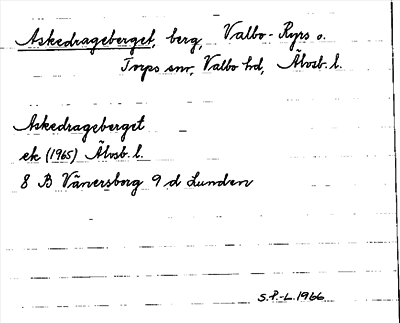 Askedrageberget, berg, Valbo-Ryrs o.
Torps snr, Valbo hd, Älvsb. l.
Askedrageberget
ek (1965) Älvsb. l.
8 B Vänersborg 9 d Lunden
S.P.-L. 1966